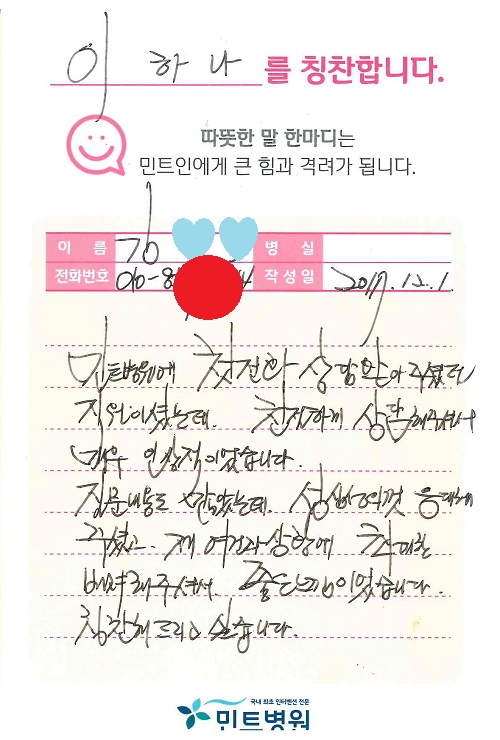 이 하 나 를 칭찬합니다.
따뜻한 말 한마디는
민트인에게 큰 힘과 격려가 됩니다.
이 름 강 병 실
전화번호 010-8 4 작성일 2017.12.1.
민트병원에 첫전화 상담 받아 주셨던
직원이셨는데. 친절하게 상담해주셔서
매우 인상적이었습니다.
질문내용도 많았는데. 성심성의껏 응대해
주셨고. 제 여건과 상황에 최대한
배려해주셔서. 좋은느낌이었습니다.
칭찬해 드리고 싶습니다.
국내 최초 인터벤션 전문
민트병원